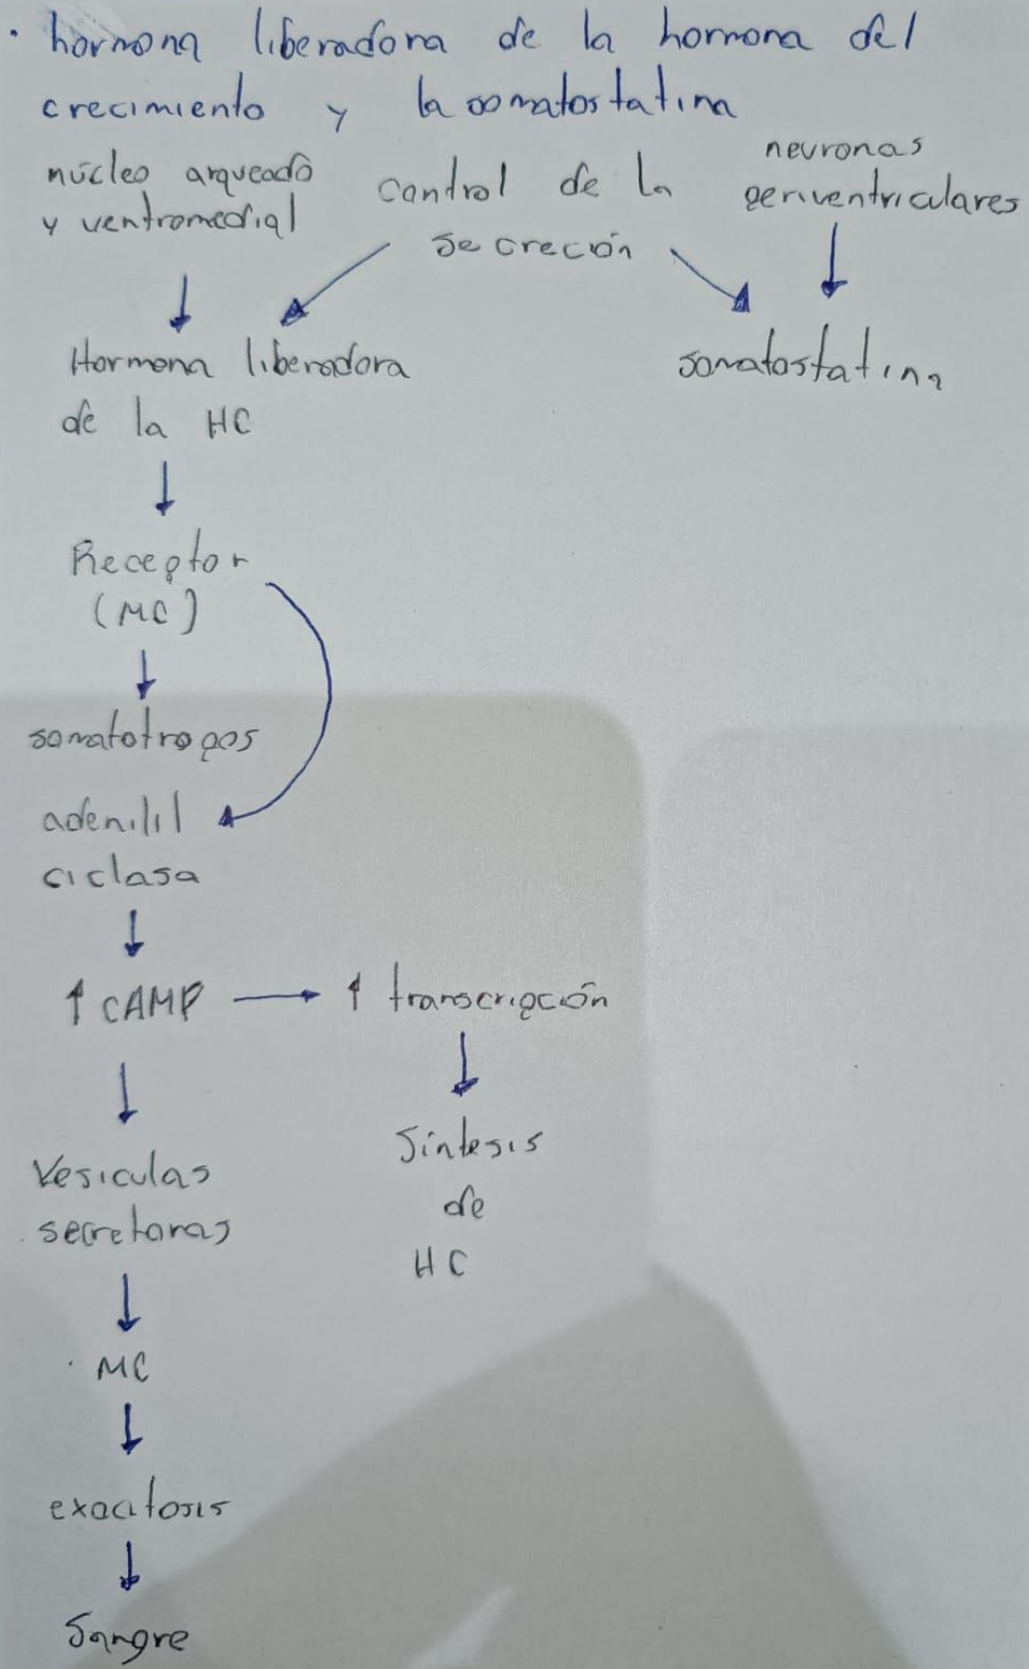 · hormona liberadora de la hormona del
crecimiento y la somatostatina
núcleo arqueado
y ventromedial
control de la
secreción
neuronas
periventriculares
Hormona liberadora
de la HC
somatostatina
Receptor
(MC)
somatotropos
adenilil
ciclasa
↑ cAMP → ↑ transcripción
Síntesis
de
HC
Vesiculas
secretoras
MC
exocitosis
Sangre